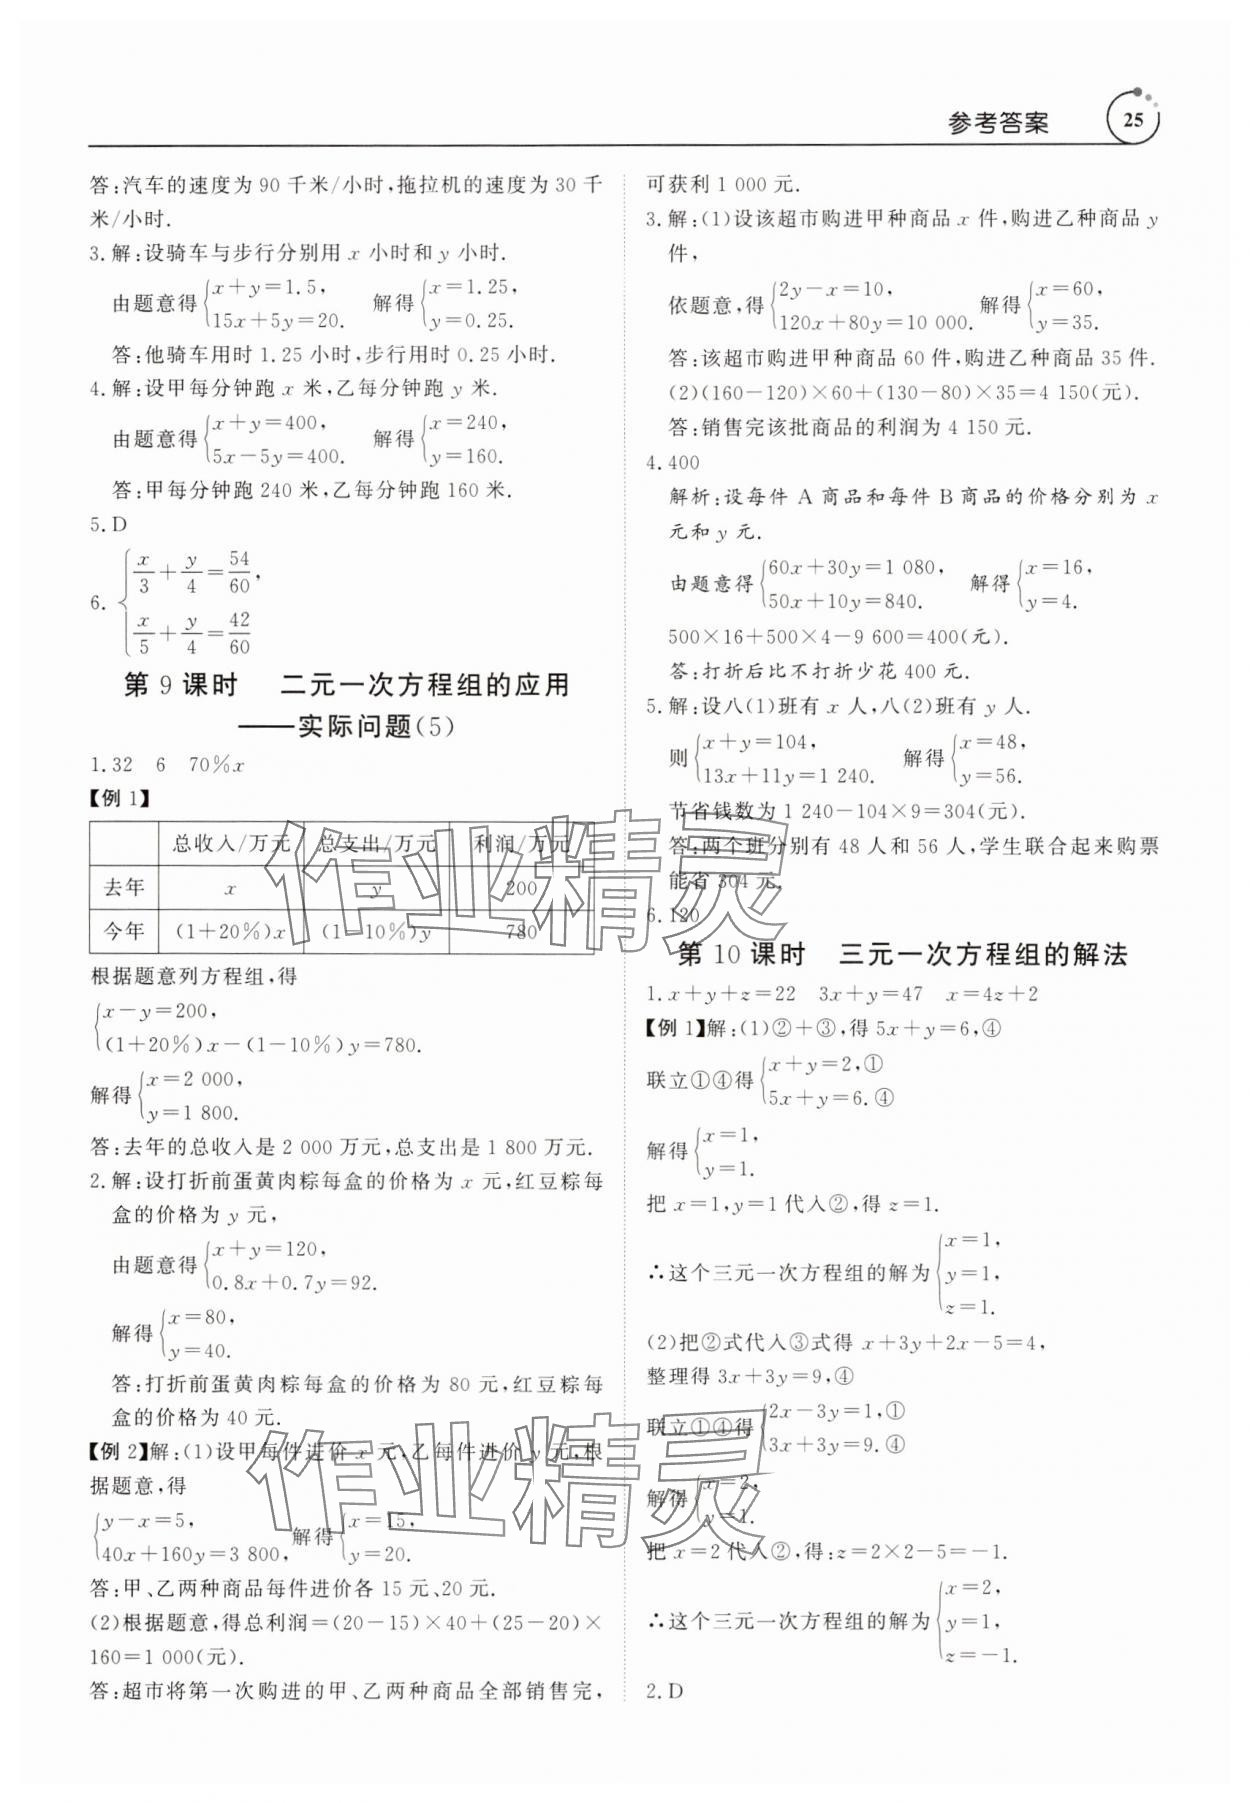 参考答案 25
答:汽车的速度为 90 千米/小时,拖拉机的速度为 30 千
米/小时.
3.解:设骑车与步行分别用 x 小时和 y 小时.
由题意得{x+y=1.5, 解得{x=1.25,
15x+5y=20. y=0.25.
答:他骑车用时 1.25 小时,步行用时 0.25 小时.
4.解:设甲每分钟跑 x 米,乙每分钟跑 y 米.
由题意得{x+y=400, 解得{x=240,
5x-5y=400. y=160.
答:甲每分钟跑 240 米,乙每分钟跑 160 米.
5.D
6.{x/3+y/4=54/60,
x/5+y/4=42/60
第 9 课时 二元一次方程组的应用
——实际问题(5)
1.32 6 70%x
【例 1】
总收入/万元 总支出/万元 利润/万元
去年 x y 200
今年 (1+20%)x (1-10%)y 780
根据题意列方程组,得
{x-y=200,
(1+20%)x-(1-10%)y=780.
解得{x=2 000,
y=1 800.
答:去年的总收入是 2 000 万元,总支出是 1 800 万元.
2.解:设打折前蛋黄肉粽每盒的价格为 x 元,红豆粽每
盒的价格为 y 元,
由题意得{x+y=120,
0.8x+0.7y=92.
解得{x=80,
y=40.
答:打折前蛋黄肉粽每盒的价格为 80 元,红豆粽每
盒的价格为 40 元.
【例 2】解:(1)设甲每件进价 x 元,乙每件进价 y 元,根
据题意,得
{y-x=5, 解得{x=15,
40x+160y=3 800, y=20.
答:甲、乙两种商品每件进价各 15 元、20 元.
(2)根据题意,得总利润=(20-15)×40+(25-20)×
160=1 000(元).
答:超市将第一次购进的甲、乙两种商品全部销售完,
可获利 1 000 元.
3.解:(1)设该超市购进甲种商品 x 件,购进乙种商品 y
件,
依题意,得{2y-x=10, 解得{x=60,
120x+80y=10 000. y=35.
答:该超市购进甲种商品 60 件,购进乙种商品 35 件.
(2)(160-120)×60+(130-80)×35=4 150(元).
答:销售完该批商品的利润为 4 150 元.
4.400
解析:设每件 A 商品和每件 B 商品的价格分别为 x
元和 y 元.
由题意得{60x+30y=1 080, 解得{x=16,
50x+10y=840. y=4.
500×16+500×4-9 600=400(元).
答:打折后比不打折少花 400 元.
5.解:设八(1)班有 x 人,八(2)班有 y 人.
则{x+y=104, 解得{x=48,
13x+11y=1 240. y=56.
节省钱数为 1 240-104×9=304(元).
答:两个班分别有 48 人和 56 人,学生联合起来购票
能省 304 元.
6.120
第 10 课时 三元一次方程组的解法
1.x+y+z=22 3x+y=47 x=4z+2
【例 1】解:(1)②+③,得 5x+y=6,④
联立①④得{x+y=2,①
5x+y=6.④
解得{x=1,
y=1.
把 x=1,y=1 代入②,得 z=1.
∴这个三元一次方程组的解为{x=1,
y=1,
z=1.
(2)把②式代入③式得 x+3y+2x-5=4,
整理得 3x+3y=9,④
联立①④得{2x-3y=1,①
3x+3y=9.④
解得{x=2,
y=1.
把 x=2 代入②,得:z=2×2-5=-1.
∴这个三元一次方程组的解为{x=2,
y=1,
z=-1.
2.D
作业精灵
作业精灵